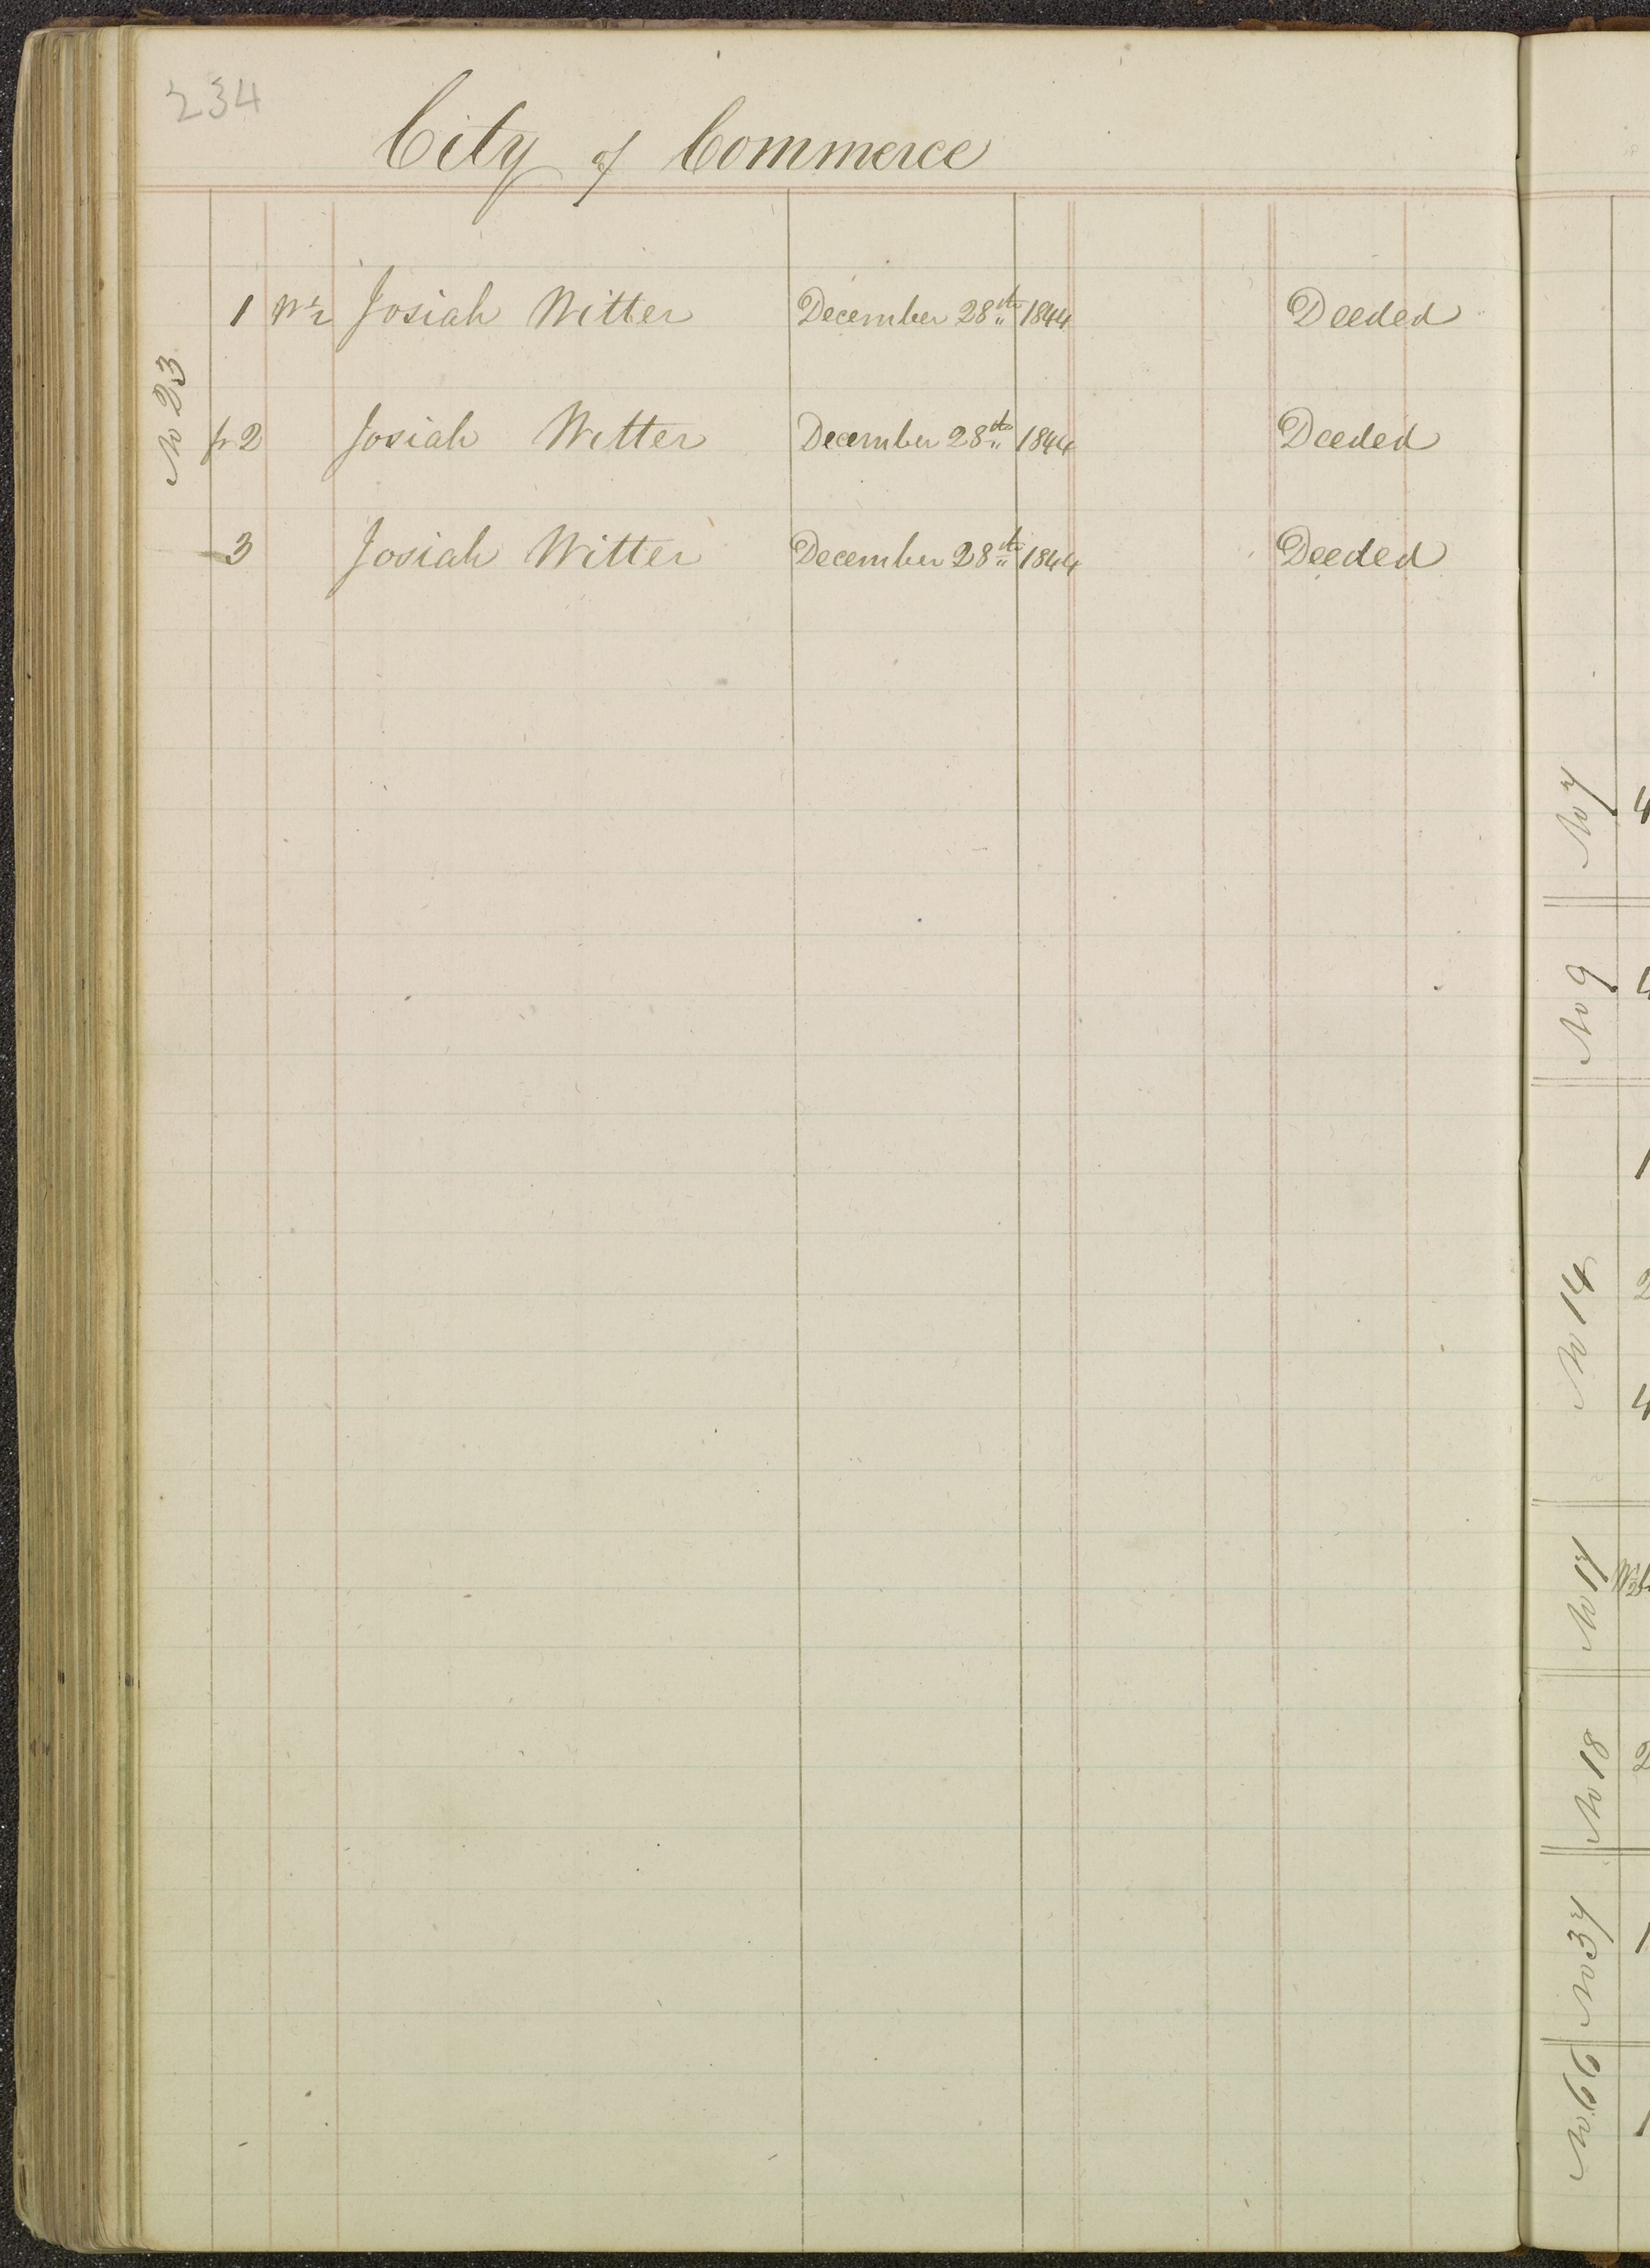 234
City of Commerce
No 23
1 W ½ Josiah Witter December 28th 1844 Deeded
fr 2 Josiah Witter December 28th 1844 Deeded
3 Josiah Witter December 28th 1844 Deeded
No 7 4
No 9 4
1
No 14 2
4
No 17
No 18 2
No 37 1
No 66 1